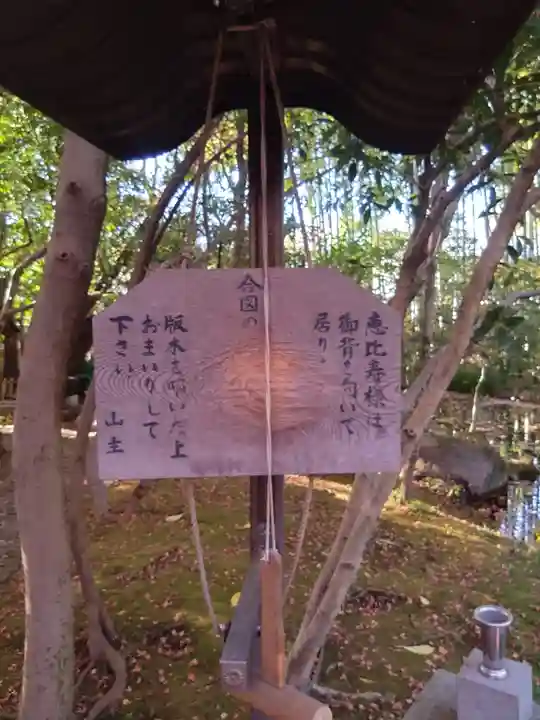 恵比寿様は
御背が向いて
居り。
合図の
版木を叩いた上
おまいりして
下さい
山主